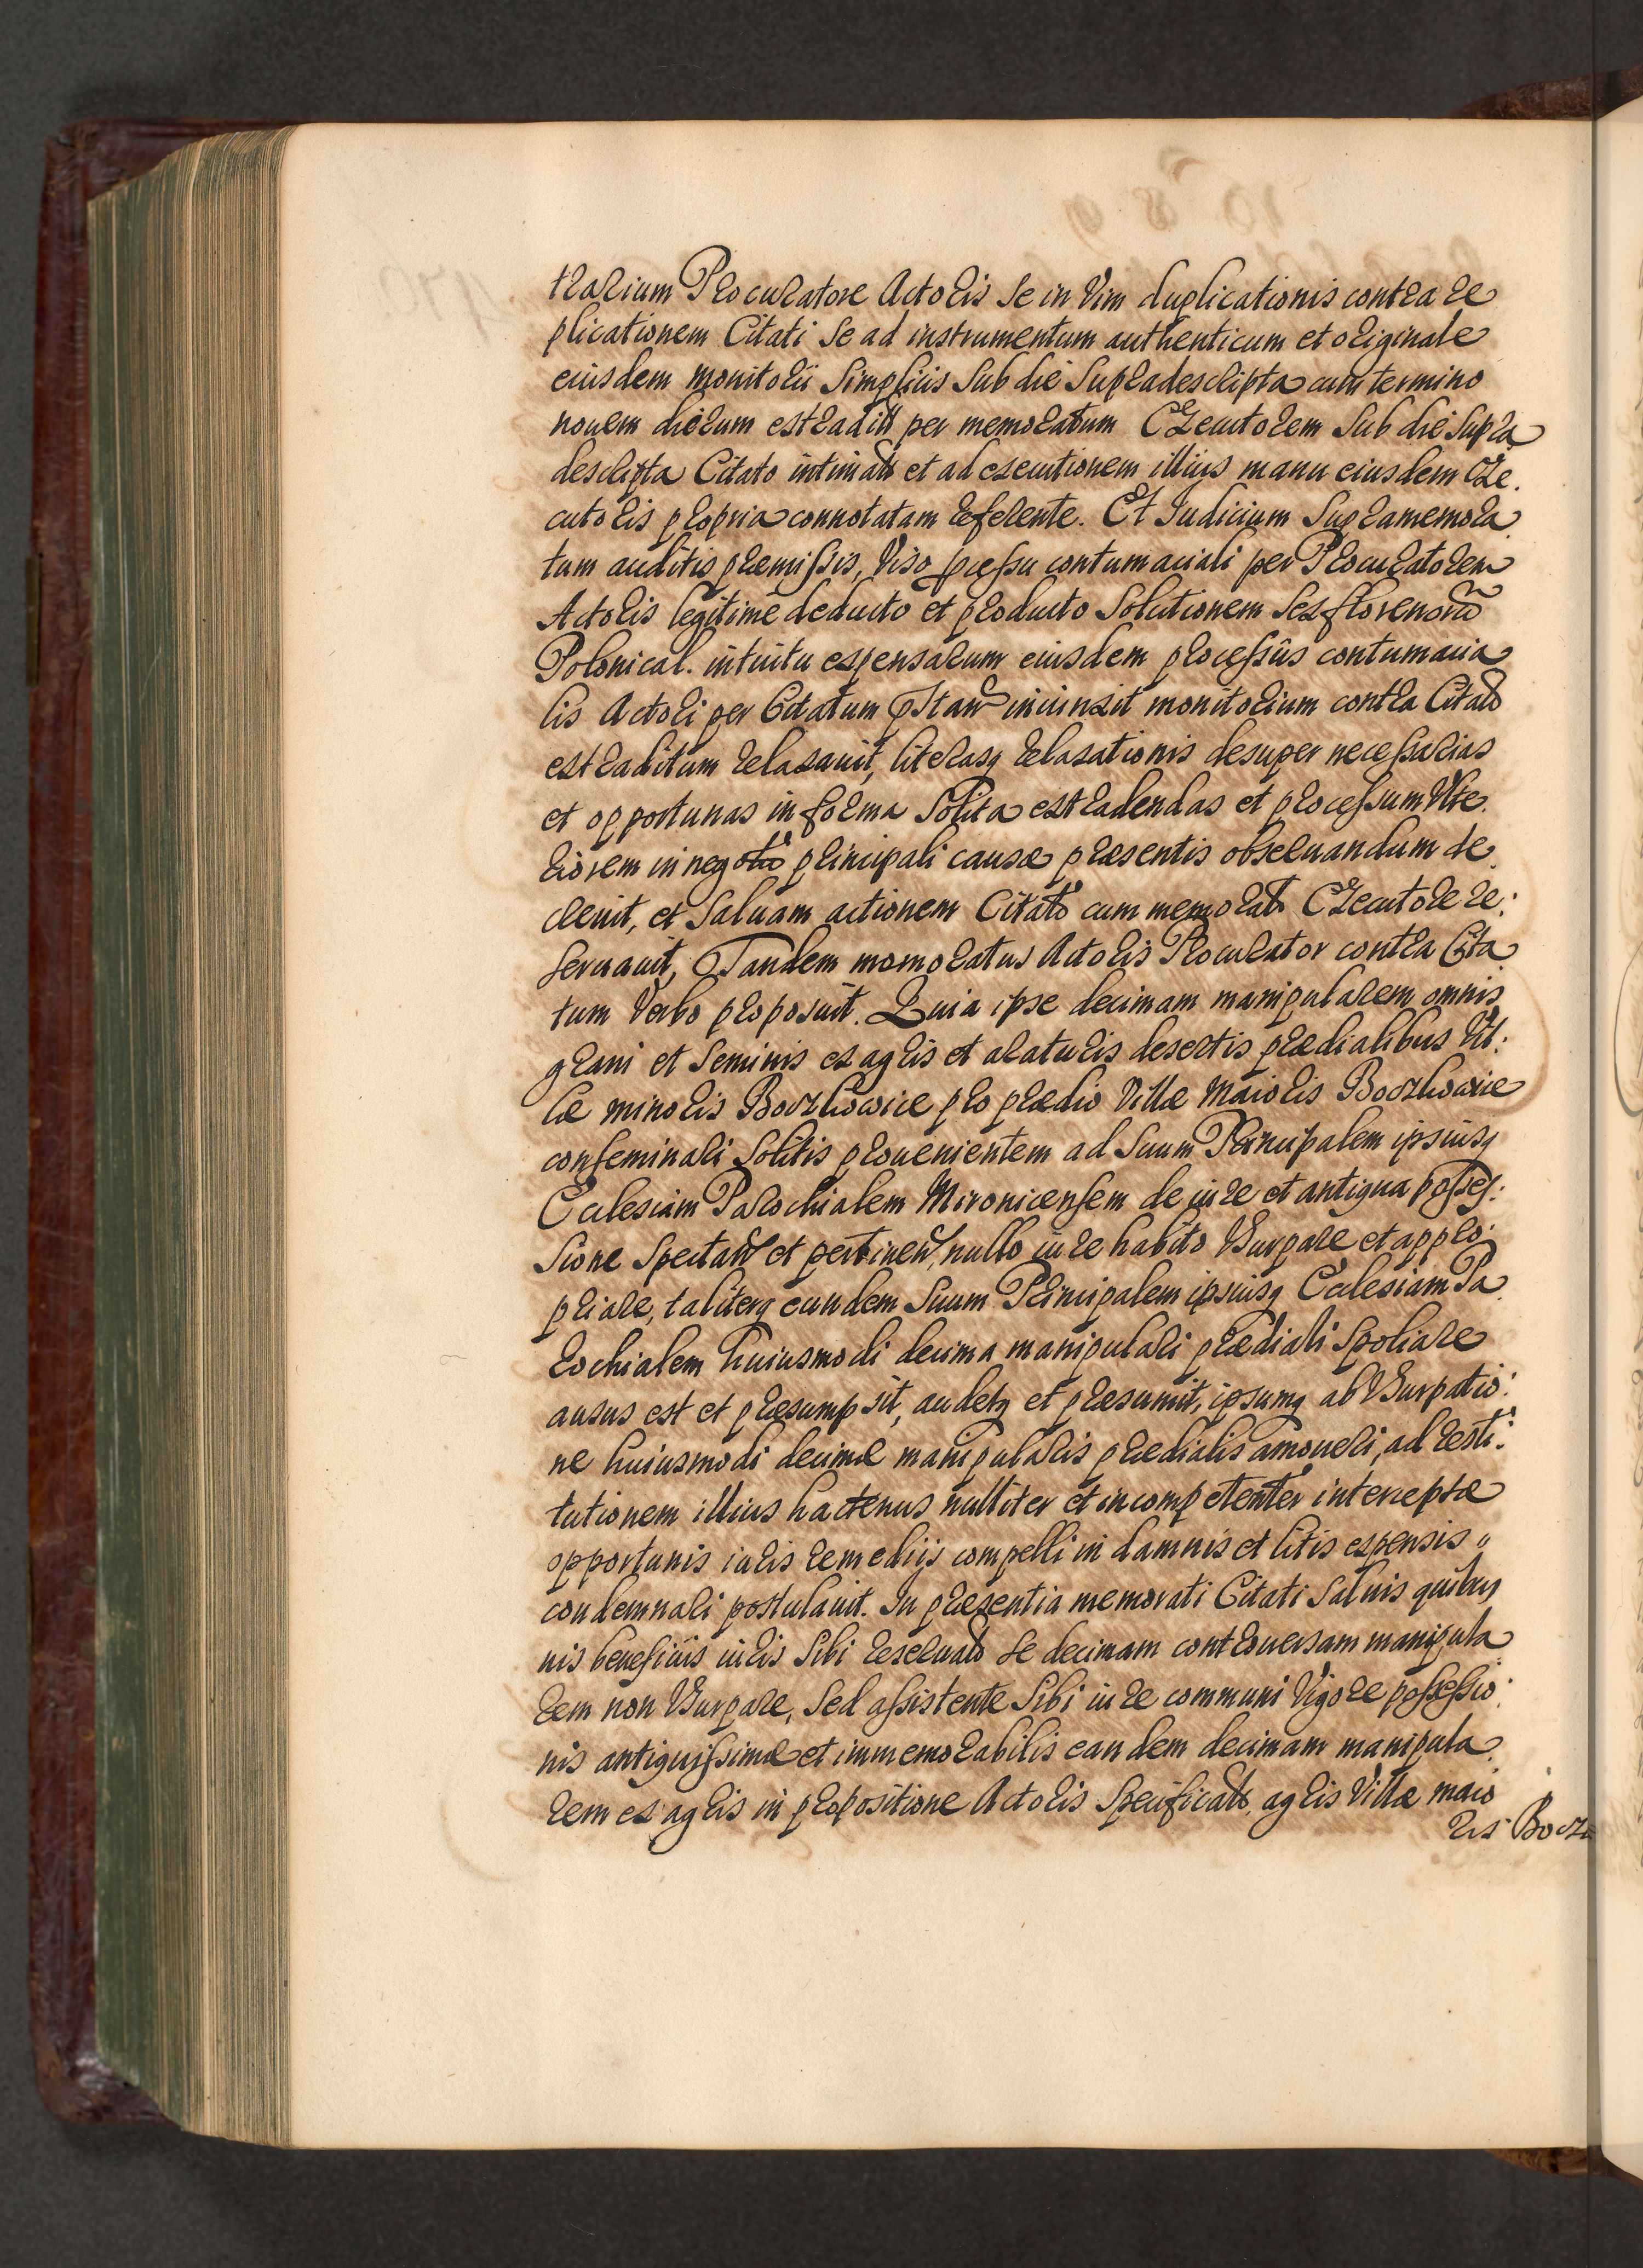 trarium Procuratore Actoris se in Vim duplicationis contra re
plicationem Citati se ad instrumentum authenticum et originale
eiusdem monitorii Simplicis Sub die Supradescripta cum termino
nouem dierum extradit per memoratum Executorem Sub die Supra
descripta Citato intimat et ad executionem illius manu eiusdem Exe.
cutoris propria connotatam referente. Et Iudicium Supramemora
tum auditis præmissis, Viso pcessu contumaciali per Procuratorem
Actoris legitimè deducto et producto Solutionem Sex florenorũ
Polonical. intuitu expensarum eiusdem processûs contumacia
lis Actori per Citatum pstan iniunxit monitorium contra Citatũ
extraditum relaxauit, literasq relaxationis desuper necessarias
et opportunas in forma Solita extradendas et processum Vlte
riorem in negotio principali causæ præsentis obseruandum de
creuit, et Saluam actionem Citato cum memorat Executore re:
seruauit, Tandem momoratus Actoris Procurator contra Cita
tum Verbo proposuit. Quia ipse decimam manipularem omnis
grani et Seminis ex agris et araturis desertis prædialibus Vil:
læ minoris Borzkowice pro prædio Villæ Maioris Borzkowice
conseminari Solitis prouenientem ad Suum Principalem ipsiusq
Ecclesiam Parochialem Mironicensem de iure et antiqua posses:
sione Spectan et pertinen, nullo iure habito Vsurpare et appro
priare, taliterq eundem Suum Principalem ipsiusq Ecclesiam Pa
rochialem huiusmodi decima manipulari prædiali Spoliare
ausus est et præsumpsit, audetq et præsumit, ipsumq ab Vsurpatio:
ne huiusmodi decimæ manipularis prædialis amoueri, ad resti:
tutionem illius hactenus nulliter et incompetenter interceptæ
opportunis iuris remediis compelli in damnis et litis expensis
condemnari postulauit. In præsentia memorati Citati Saluis quibus
uis beneficiis iuris Sibi reseruat se decimam controuersam manipula
rem non Vsurpare, Sed assistente Sibi iure communi Vigore possessio:
nis antiquissimæ et immemorabilis eandem decimam manipula
rem ex agris in propositione Actoris Specificat, agris Villæ maio
ris Borz